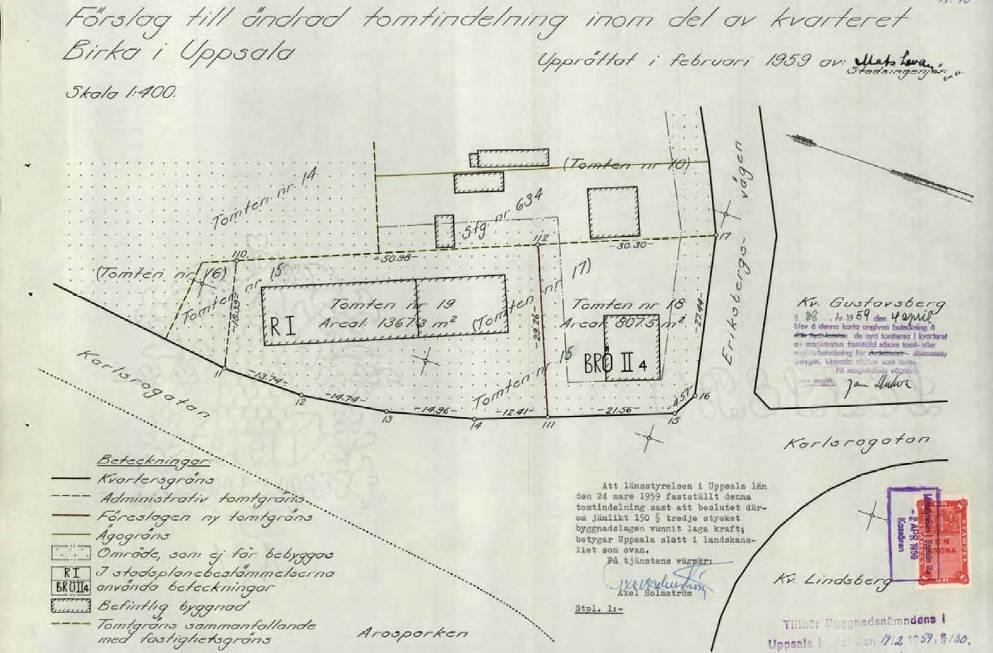 Förslag till ändrad tomtindelning inom del av kvarteret
Birka i Uppsala
Upprättat i februari 1959 av:
Stadsingenjör
Skala 1:400.
Tomten nr 14
(Tomten nr 10)
Stg. nr 634
Eriksbergsvägen
17
110
112
-50.98-
-30.30-
(Tomten nr 16)
Tomten nr 15
Tomten nr 19
Areal: 1367.3 m²
(Tomten nr 17)
Tomten nr 18
Areal: 807.5 m²
RI
BRÖ II 4
Tomten nr 15
-29.26-
-27.44-
11
-13.74-
12
-14.74-
13
-14.96-
14
-12.41-
111
-21.56-
15
4.57
16
Karlsrogatan
Karlsrogatan
Kv. Gustavsberg
§ 28 . År 1959 den 4 april
blev å denna karta angivna beteckning å
de nya tomterna i kvarteret
Kv. Lindsberg
Arosparken
Beteckningar
Kvartersgräns
Administrativ tomtgräns
Föreslagen ny tomtgräns
Ägogräns
Område, som ej får bebyggas
RI
BRÖII4
I stadsplanebestämmelserna
använda beteckningar
Befintlig byggnad
Tomtgräns sammanfallande
med fastighetsgräns
Att länsstyrelsen i Uppsala län
den 24 mars 1959 fastställt denna
tomtindelning samt att beslutet där-
om jämlikt 150 § tredje stycket
byggnadslagen vunnit laga kraft;
betygar Uppsala slott i landskans-
liet som ovan.
På tjänstens vägnar:
Axel Holmström
Stpl. 1:-
- 2 APR 1959
Tillhör Byggnadsnämndens i
Uppsala
1959. § 130.